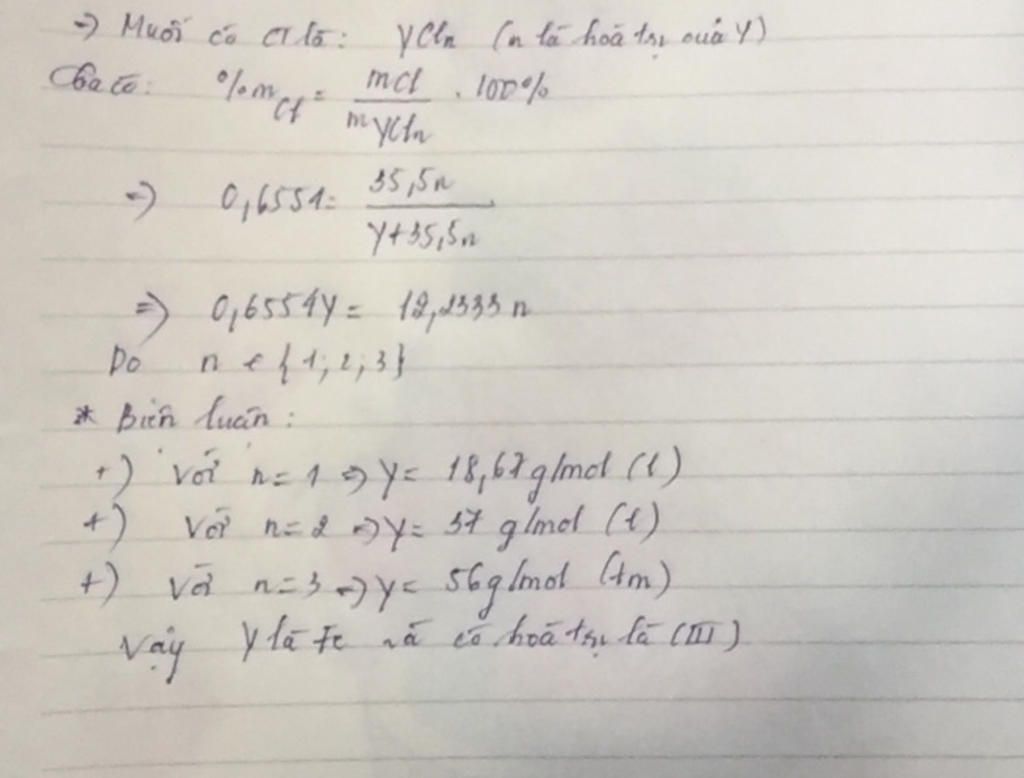 => Muối có CT là: YCln (n là hoá trị của Y)
Ta có: %mCl = mCl / mYCln . 100%
=> 0,6551 = 35,5n / Y+35,5n
=> 0,6551Y = 12,2333n
Do n ∈ {1; 2; 3}
* Biện luận:
+) Với n = 1 => Y = 18,67 g/mol (l)
+) Với n = 2 => Y = 37 g/mol (l)
+) Với n = 3 => Y = 56g/mol (tm)
Vậy Y là Fe và có hoá trị là (III)